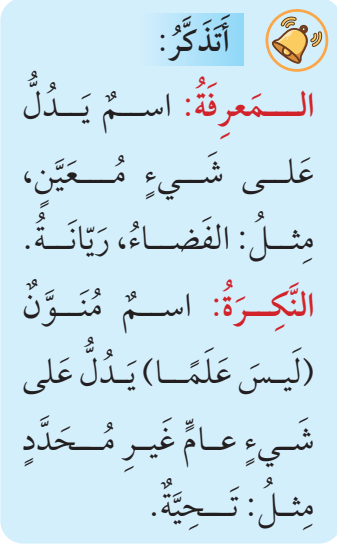 أَتَذَكَّرُ:
المَعرِفَةُ: اسمٌ يَدُلُّ
عَلى شَيءٍ مُعَيَّنٍ،
مِثلُ: الفَضاءُ، رَيّانَةُ.
النَّكِرَةُ: اسمٌ مُنَوَّنٌ
(لَيسَ عَلَمًا) يَدُلُّ عَلى
شَيءٍ عامٍّ غَيرِ مُحَدَّدٍ
مِثلُ: تَحِيَّةٌ.